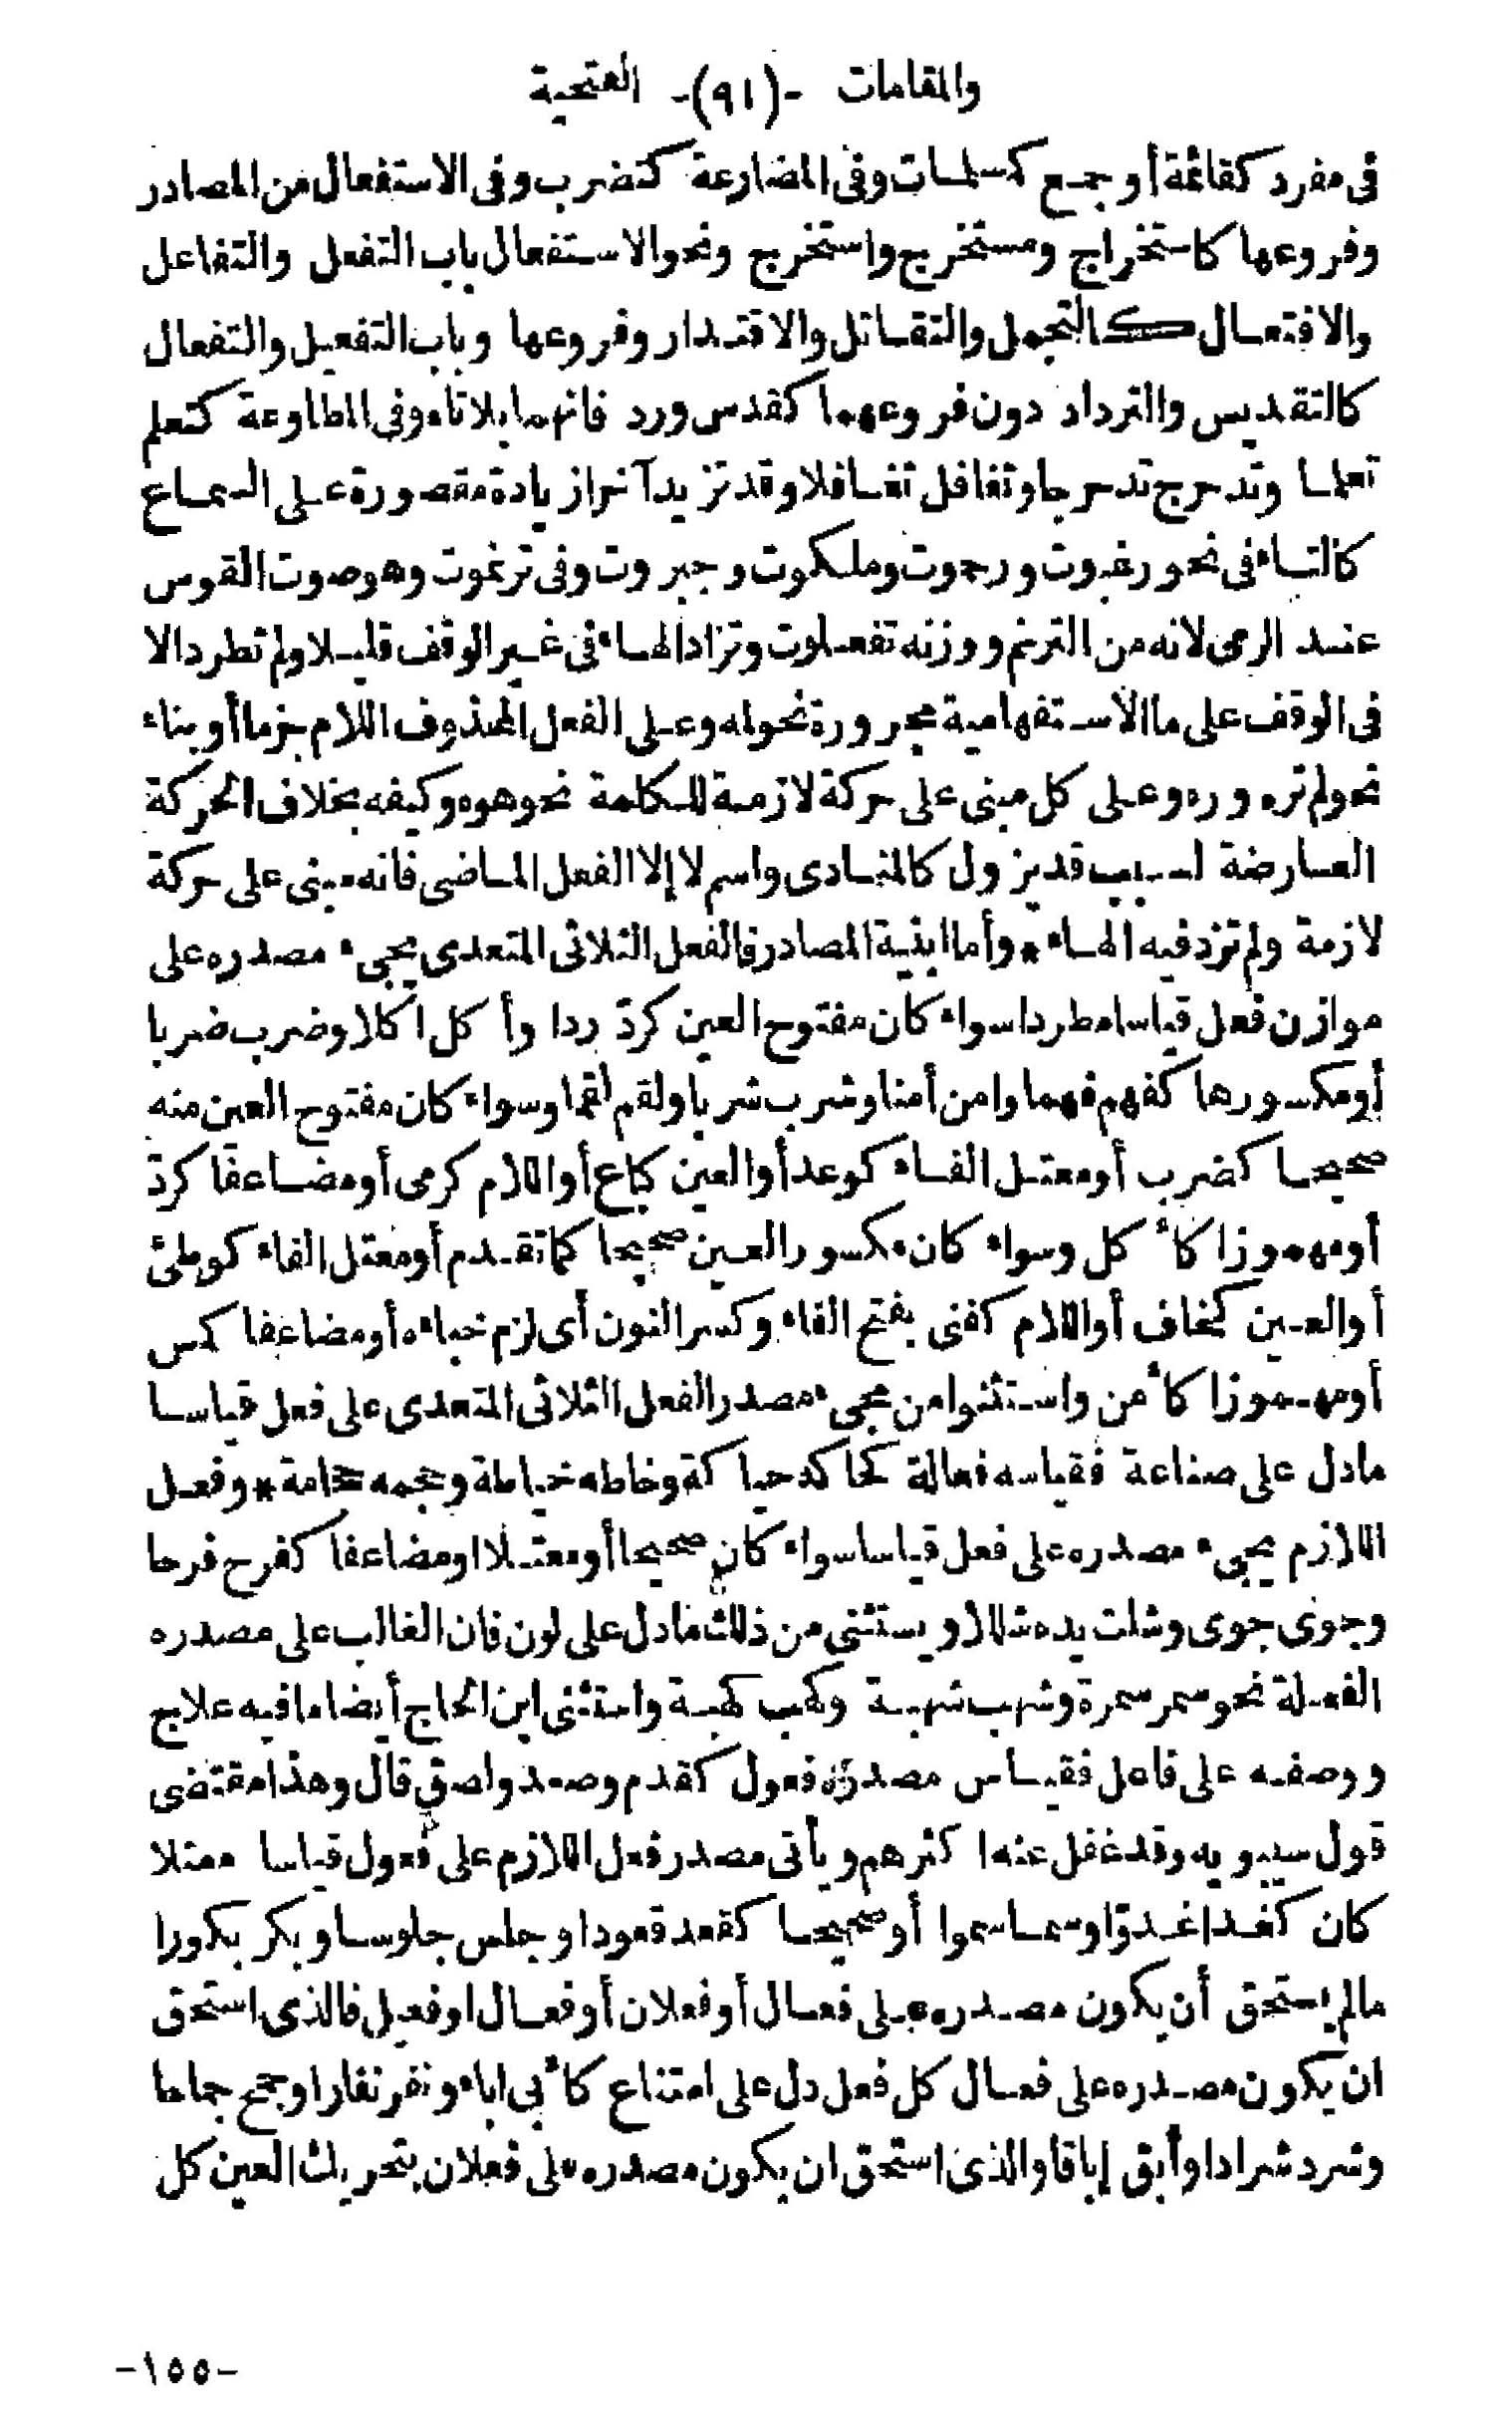 والمقامات -(٩١)- الفتحية
فى مفرد كقائمة أو جمع كمسلمات وفى المضارعة كتضرب وفى الاستفعال من المصادر
وفروعها كاستخراج ومستخرج واستخرج ونحو الاستفعال باب التفعل والتفاعل
والافتعال كالتجمل والتقاتل والاقتدار وفروعها وباب التفعيل والتفعال
كالتقديس والترداد دون فروعهما كقدس ورد فانهما بلا تاء وفى المطاوعة كتعلم
تعلما وتدحرج تدحرجا وتغافل تغافلا وقد تزيد آخرا زيادة مقصورة على السماع
كالتاء فى نحو رغبوت ورحموت وملكوت وجبروت وفى ترنموت وهو صوت القوس
عند الرمى لانه من الترنم ووزنه تفعلوت وتزاد الهاء فى غير الوقف قليلا ولم تطرد الا
فى الوقف على ما الاستفهامية مجرورة نحو له وعلى الفعل المحذوف اللام جزما أو بناء
نحو لم تره وره وعلى كل مبنى على حركة لازمة للكلمة نحو هوه وكيفه بخلاف الحركة
العارضة لسبب قد يزول كالمنادى واسم لا إلا الفعل الماضى فانه مبنى على حركة
لازمة ولم تزد فيه الهاء * وأما ابنية المصادر فالفعل الثلاثى المتعدى يجىء مصدره على
موازن فعل قياسا مطردا سواء كان مفتوح العين كردّ ردا وأكل اكلا وضرب ضربا
أو مكسورها كفهم فهما وامن أمنا وشرب شربا ولقم لقما وسواء كان مفتوح العين منه
صحيحا كضرب أو معتل الفاء كوعد أو العين كباع أو اللام كرمى أو مضاعفا كردّ
أو مهموزا كأكل وسواء كان مكسور العين صحيحا كما تقدم أو معتل الفاء كوطئ
أو العين كخاف أو اللام كفنى بفتح الفاء وكسر النون أى لزم خباءه أو مضاعفا كمس
أو مهموزا كأمن واستثنوا من مجىء مصدر الفعل الثلاثى المتعدى على فعل قياسا
مادل على صناعة فقياسه فعالة كحاكه حياكة وخاطه خياطة وحجمه حجامة * وفعل
اللازم يجىء مصدره على فعل قياسا سواء كان صحيحا أو معتلا او مضاعفا كفرح فرحا
وجوى جوى وشلت يده شللا ويستثنى من ذلك مادل على لون فان الغالب على مصدره
الفعلة نحو سمر سمرة وشهب شهبة وكهب كهبة واستثنى ابن الحاج أيضا ما فيه علاج
ووصفه على فاعل فقياس مصدره فعول كقدم وصعد ولصق قال وهذا مقتضى
قول سيبويه وقد غفل عنه اكثرهم ويأتى مصدر فعل اللازم على فعول قياسا معتلا
كان كغدا غدوّا وسما سموا أو صحيحا كقعد قعودا وجلس جلوسا وبكر بكورا
مالم يستحق أن يكون مصدره على فعال أو فعلان أو فعال او فعيل فالذى استحق
ان يكون مصدره على فعال كل فعل دل على امتناع كأبى اباء ونفر نفارا وجمح جماحا
وشرد شرادا وأبق إباقا والذى استحق ان يكون مصدره على فعلان بتحريك العين كل
-١٥٥-